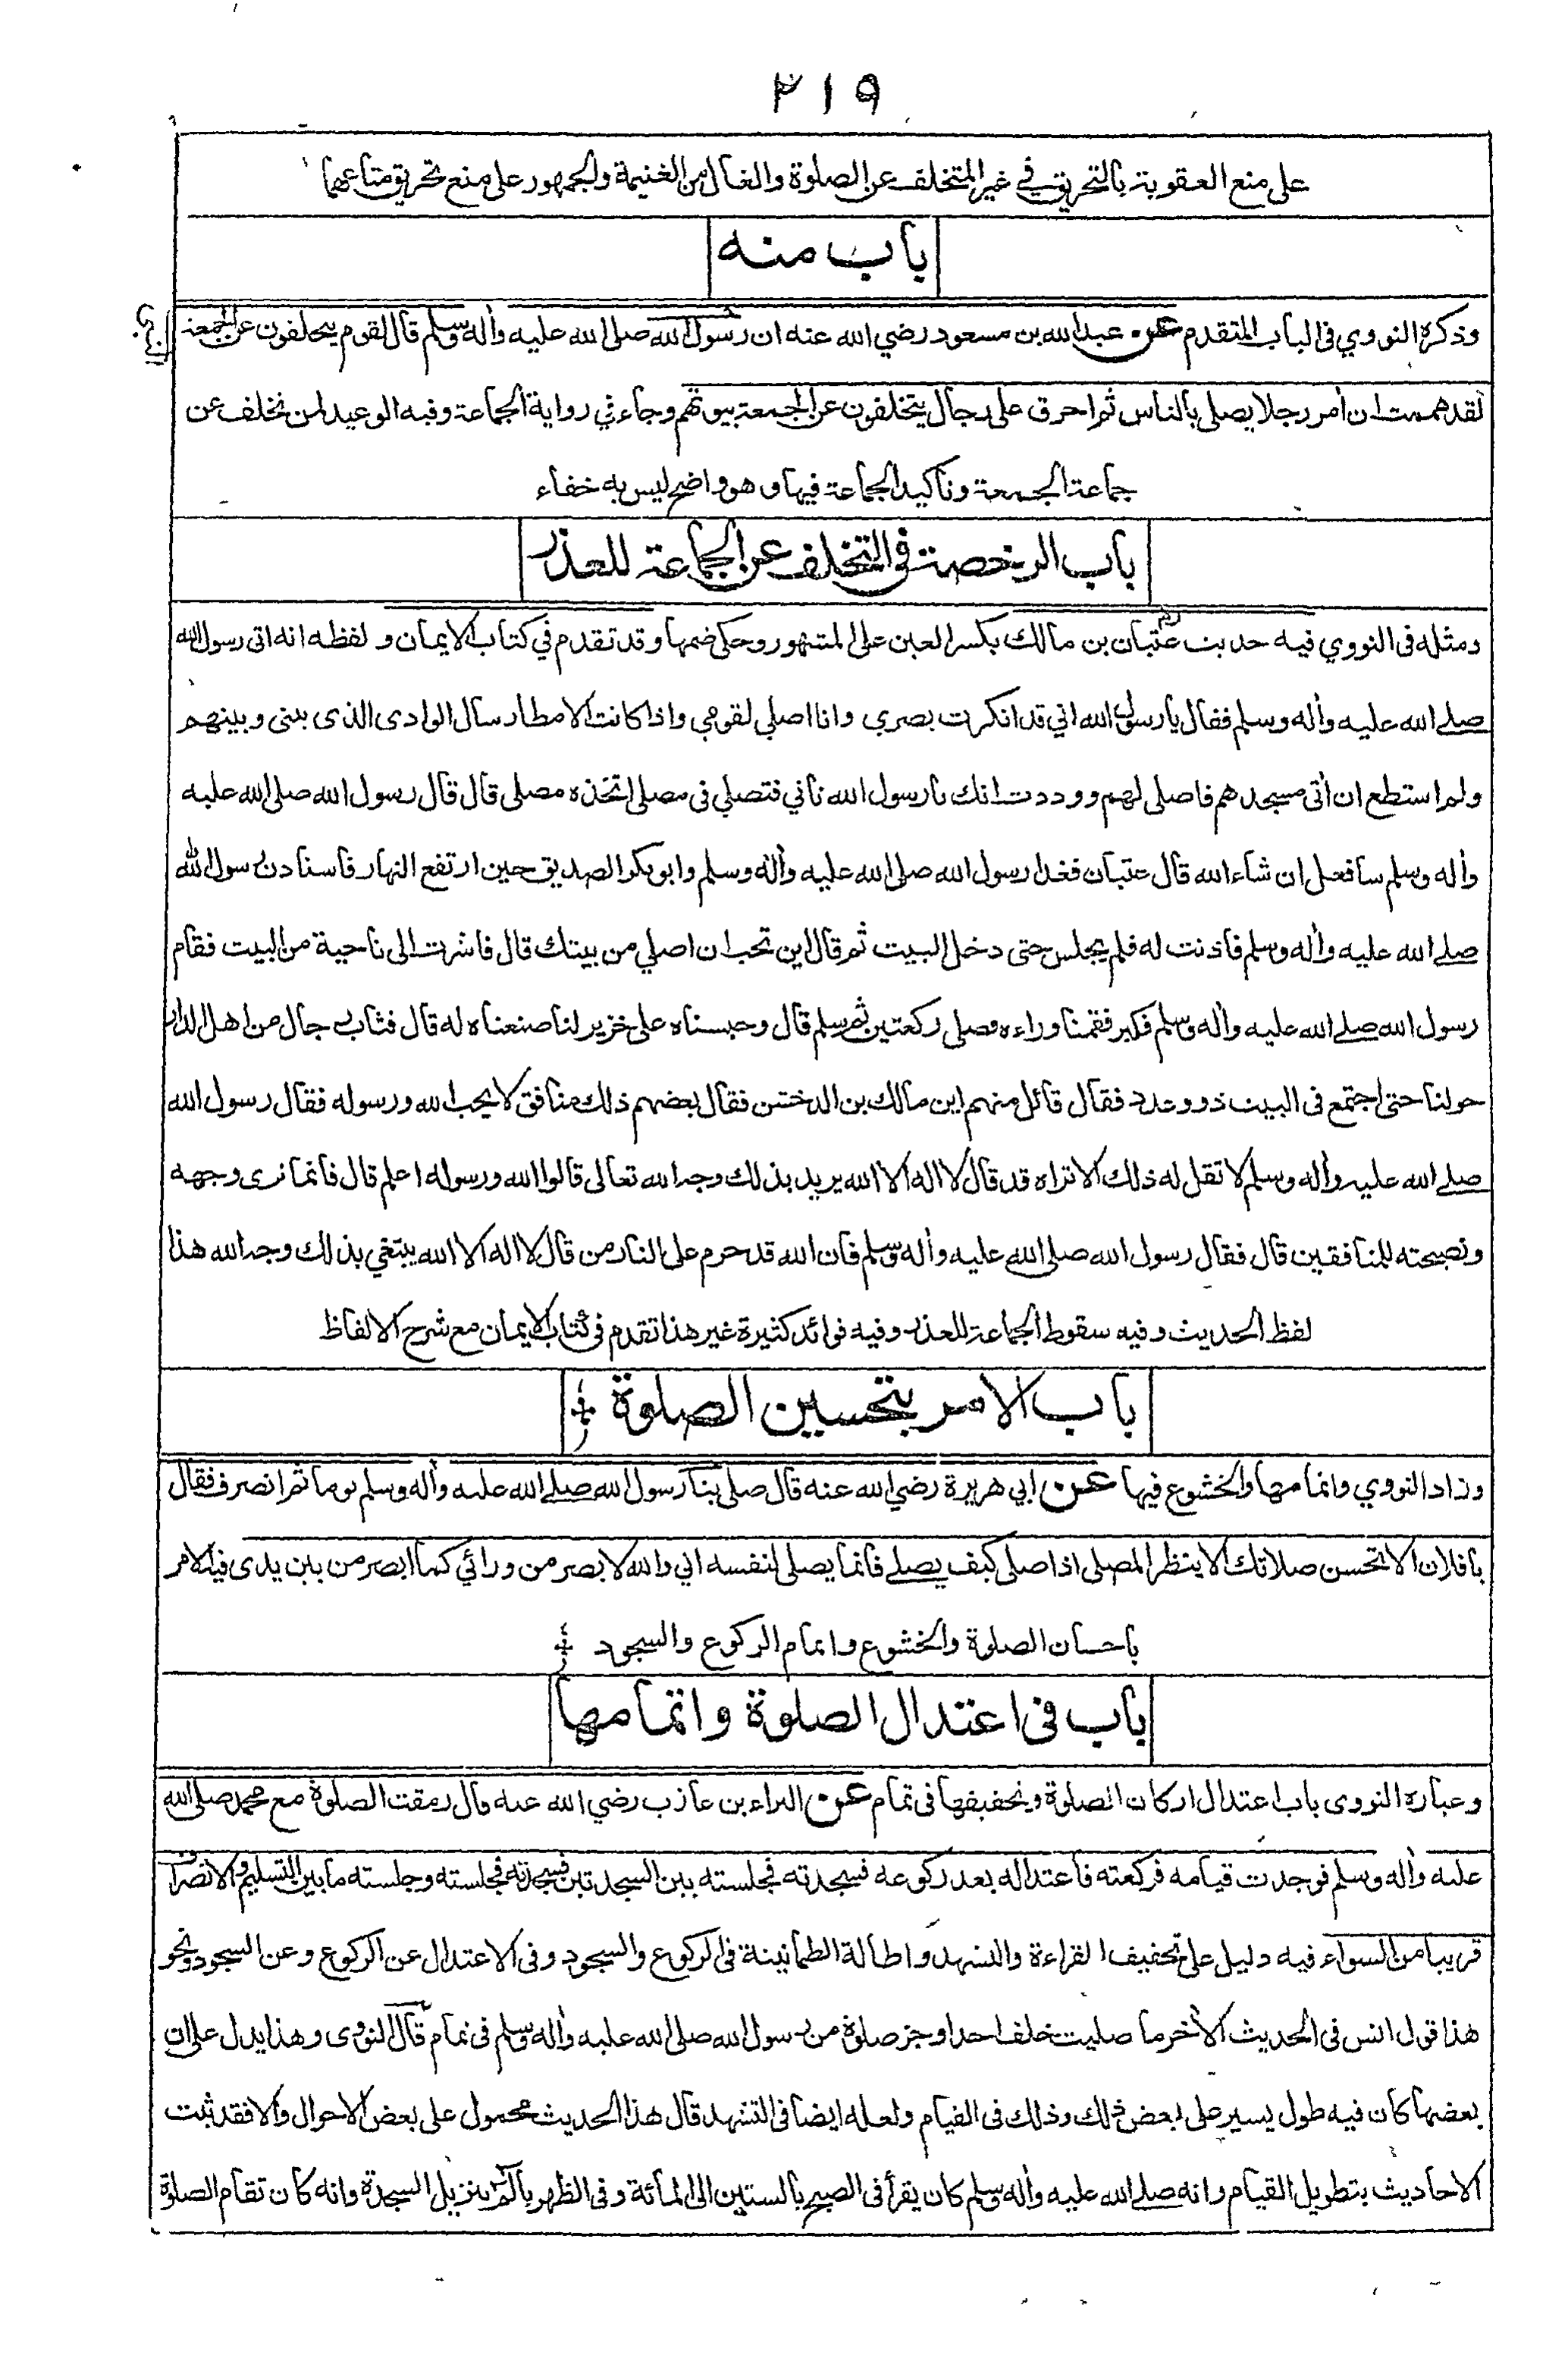 ٢١٩
على منع العقوبة بالتحريق في غير المتخلف عن الصلوة والغال من الغنيمة والجمهور على منع تحريق متاعهما
باب منه
وذكره النووي فى الباب المتقدم عن عبد الله بن مسعود رضي الله عنه ان رسول الله صلى الله عليه وأله وسلم قال لقوم يتخلفون عن الجمعة
لقد هممت ان أمر رجلا يصلى بالناس ثم احرق على رجال يتخلفون عن الجمعة بيوتهم وجاء في رواية الجماعة وفيه الوعيد لمن تخلف عن
جماعة الجمعة وتاكيد الجماعة فيها وهو واضح ليس به خفاء
باب الرخصة فى التخلف عن الجماعة للعذر
ومثله فى النووي فيه حديث عتبان بن مالك بكسر العين على المشهور وحكى ضمها وقد تقدم في كتاب الايمان ولفظه انه اتى رسول الله
صلے الله عليه وأله وسلم فقال يا رسول الله اني قد انكرت بصري وانا اصلي لقومي واذا كانت الامطار سال الوادى الذى بينى وبينهم
ولم استطع ان أتى مسجدهم فاصلى لهم ووددت انك يا رسول الله تاتي فتصلي فى مصلى اتخذه مصلى قال قال رسول الله صلى الله عليه
وأله وسلم سافعل ان شاء الله قال عتبان فغدا رسول الله صلى الله عليه وأله وسلم وابو بكر الصديق حين ارتفع النهار فاستاذن رسول الله
صلے الله عليه وأله وسلم فاذنت له فلم يجلس حتى دخل البيت ثم قال اين تحب ان اصلي من بيتك قال فاشرت الى ناحية من البيت فقام
رسول الله صلے الله عليه وأله وسلم فكبر فقمنا وراءه فصلى ركعتين ثم سلم قال وحبسناه على خزير لنا صنعناه له قال فثاب رجال من اهل الدار
حولنا حتى اجتمع فى البيت ذوو عدد فقال قائل منهم اين مالك بن الدخشن فقال بعضهم ذلك منافق لا يحب الله ورسوله فقال رسول الله
صلے الله عليه وأله وسلم لا تقل له ذلك الا تراه قد قال لا اله الا الله يريد بذلك وجه الله تعالى قالوا الله ورسوله اعلم قال فانما نرى وجهه
ونصيحته للمنافقين قال فقال رسول الله صلى الله عليه وأله وسلم فان الله قد حرم على النار من قال لا اله الا الله يبتغي بذلك وجه الله هذا
لفظ الحديث وفيه سقوط الجماعة للعذر وفيه فوائد كثيرة غير هذا تقدم فى كتاب الايمان مع شرح الالفاظ
باب الامر بتحسين الصلوة
وزاد النووي واتمامها والخشوع فيها عن ابي هريرة رضي الله عنه قال صلى بنا رسول الله صلے الله عليه وأله وسلم يوما ثم انصرف فقال
يا فلان الا تحسن صلاتك الا ينظر المصلى اذا صلى كيف يصلے فانما يصلى لنفسه اني والله لابصر من ورائي كما ابصر من بين يدى فيه الامر
باحسان الصلوة والخشوع واتمام الركوع والسجود
باب فى اعتدال الصلوة واتمامها
وعبارة النووى باب اعتدال اركان الصلوة وتخفيفها فى تمام عن البراء بن عازب رضي الله عنه قال رمقت الصلوة مع محمد صلى الله
عليه وأله وسلم فوجدت قيامه فركعته فاعتداله بعد ركوعه فسجدته فجلسته بين السجدتين فسجدته فجلسته وجلسته ما بين التسليم والانصراف
قريبا من السواء فيه دليل على تخفيف القراءة والتشهد واطالة الطمانينة فى الركوع والسجود وفى الاعتدال عن الركوع وعن السجود ونحو
هذا قول انس فى الحديث الأخر ما صليت خلف احد اوجز صلوة من رسول الله صلى الله عليه وأله وسلم فى تمام قال النووى وهذا يدل على ان
بعضها كان فيه طول يسير على بعض ذلك وذلك فى القيام ولعله ايضا فى التشهد قال هذا الحديث محمول على بعض الاحوال والا فقد ثبت
الاحاديث بتطويل القيام وانه صلے الله عليه وأله وسلم كان يقرأ فى الصبح بالستين الى المائة وفى الظهر بالم تنزيل السجدة وانه كان تقام الصلوة